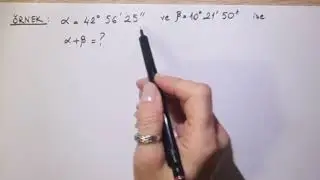 ÖRNEK: α = 42° 56' 25" ve β = 10° 21' 50" ise
α+β = ?